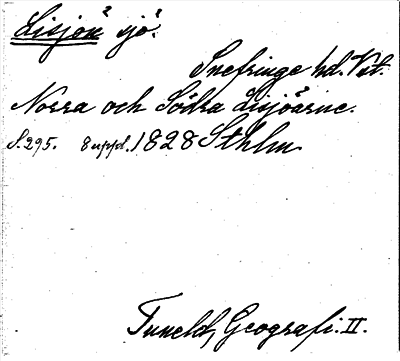 Lisjön² sjö.
Snefringe hd. Vstl.
Norra och Södra Lisjöarne.
S. 295. 8 uppl. 1828 Sthlm.
Tuneld, Geografi. II.